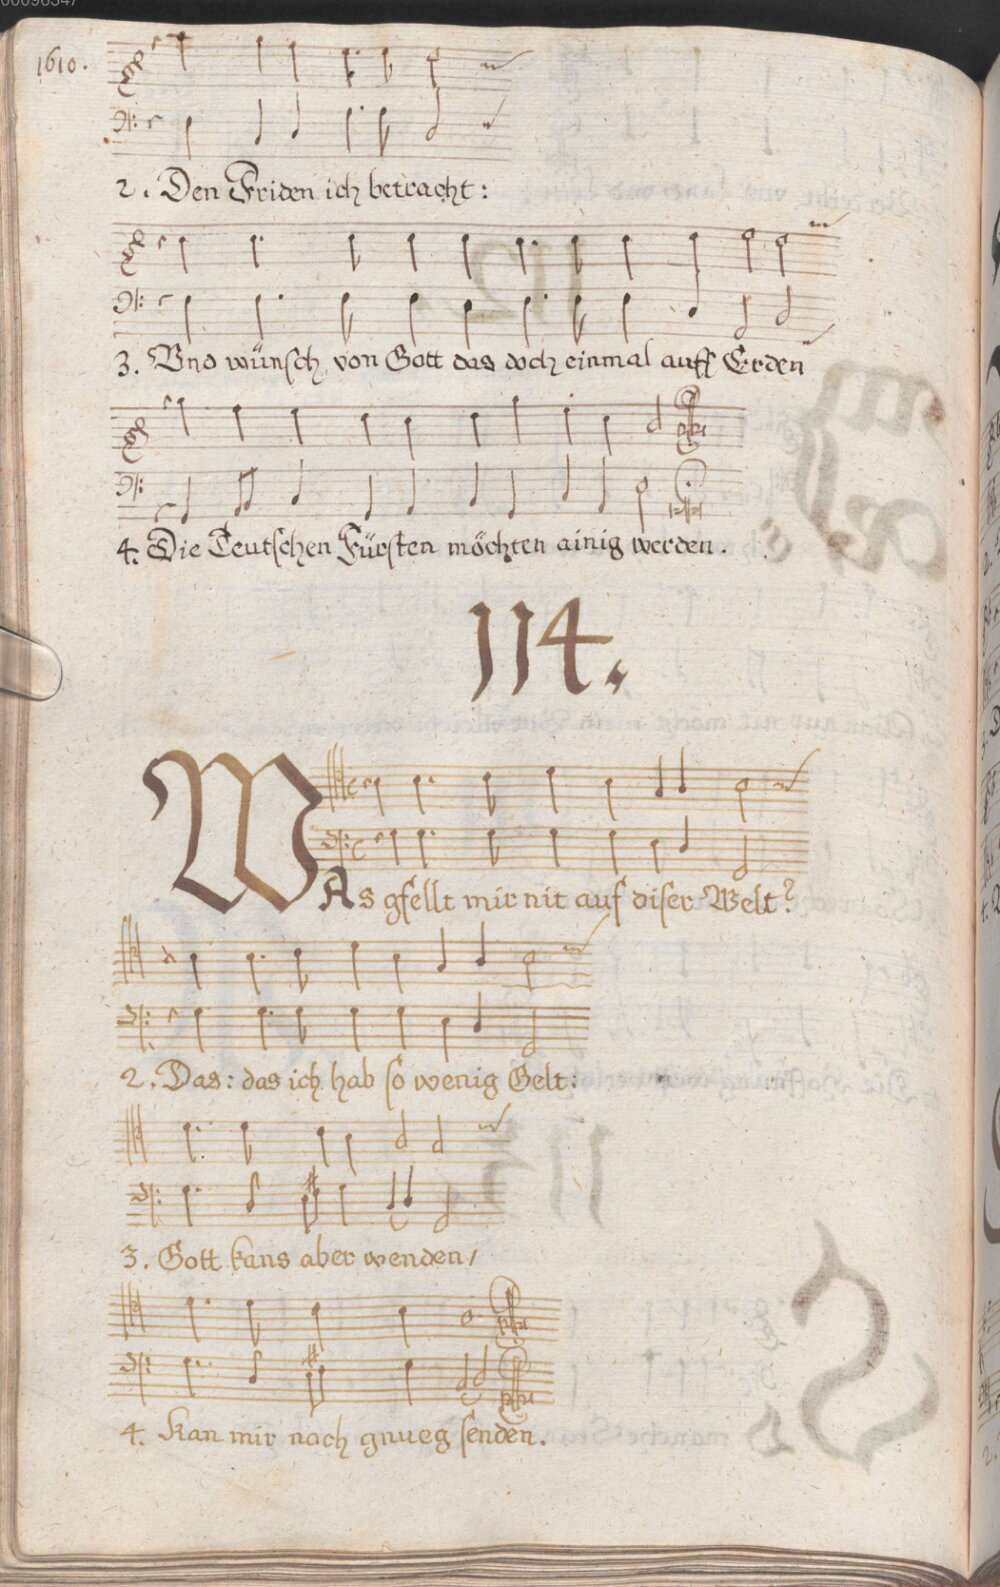 00096347
1610.
2. Den Friden ich betracht:
3. Vnd wünsch von Gott das doch einmal auff Erden
4. Die Teutschen Fürsten möchten ainig werden.
114.
WAs gfellt mir nit auf diser Welt?
2. Das: das ich hab so wenig Gelt:
3. Gott kans aber wenden/
4. Kan mir noch gnueg senden.